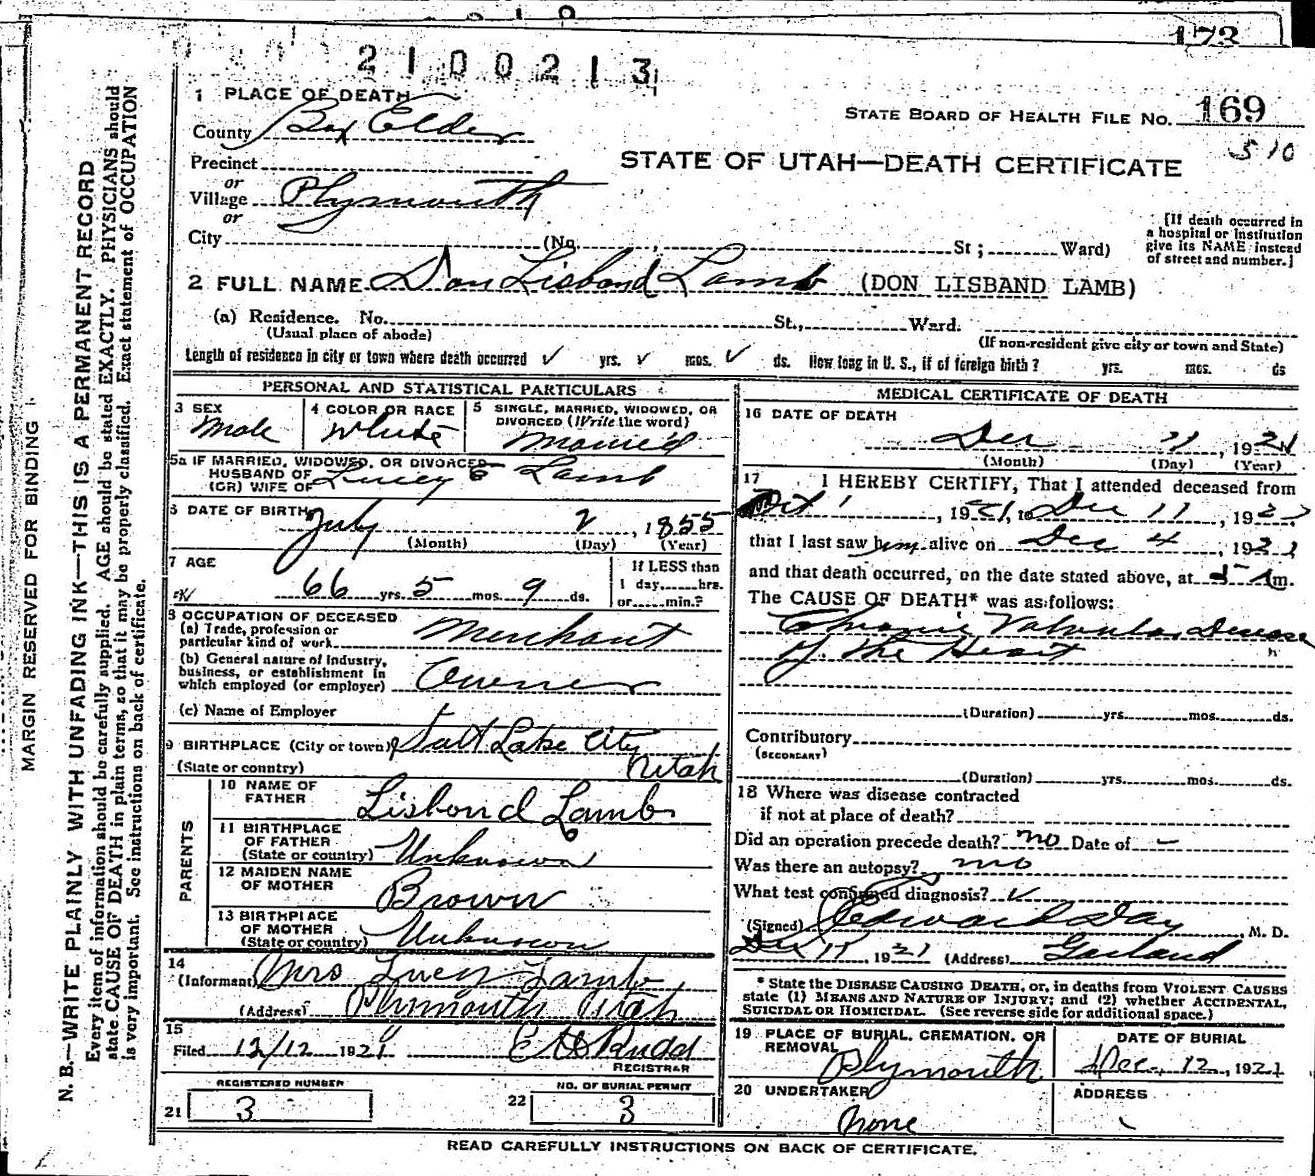 173
2100213
1 PLACE OF DEATH
County Box Elder
STATE BOARD OF HEALTH FILE NO. 169
510
Precinct
or
Village Plymouth
or
City (No. St; Ward)
STATE OF UTAH—DEATH CERTIFICATE
[If death occurred in
a hospital or institution
give its NAME instead
of street and number.]
2 FULL NAME Don Lisband Lamb (DON LISBAND LAMB)
(a) Residence. No. St., Ward.
(Usual place of abode) (If non-resident give city or town and State)
Length of residence in city or town where death occurred ✓ yrs. ✓ mos. ✓ ds. How long in U. S., if of foreign birth? yrs. mos. ds
PERSONAL AND STATISTICAL PARTICULARS
3 SEX
Male
4 COLOR OR RACE
White
5 SINGLE, MARRIED, WIDOWED, OR
DIVORCED (Write the word)
Married
5a IF MARRIED, WIDOWED, OR DIVORCED
HUSBAND OF
(OR) WIFE OF Lucey E Lamb
6 DATE OF BIRTH July 2, 1855
(Month) (Day) (Year)
7 AGE
66 yrs. 5 mos. 9 ds.
If LESS than
1 day, hrs.
or min.?
8 OCCUPATION OF DECEASED
(a) Trade, profession or
particular kind of work Merchant
(b) General nature of industry,
business, or establishment in
which employed (or employer) Owner
(c) Name of Employer
9 BIRTHPLACE (City or town) Salt Lake City
(State or country) Utah
PARENTS
10 NAME OF
FATHER Lisbond Lamb
11 BIRTHPLACE
OF FATHER
(State or country) Unknown
12 MAIDEN NAME
OF MOTHER Brown
13 BIRTHPLACE
OF MOTHER
(State or country) Unknown
14
(Informant) Mrs Lucey Lamb
(Address) Plymouth Utah
15
Filed 12/12 1921 Rudd
REGISTRAR
REGISTERED NUMBER
21 3
NO. OF BURIAL PERMIT
22 3
MEDICAL CERTIFICATE OF DEATH
16 DATE OF DEATH
Dec 11, 1921
(Month) (Day) (Year)
17 I HEREBY CERTIFY, That I attended deceased from
Oct 1, 1921, to Dec 11, 1921
that I last saw him alive on Dec 4, 1921
and that death occurred, on the date stated above, at 5 Am.
The CAUSE OF DEATH* was as follows:
Chronic Valvular Disease
of the Heart
(Duration) yrs. mos. ds.
Contributory
(SECONDARY)
(Duration) yrs. mos. ds.
18 Where was disease contracted
if not at place of death?
Did an operation precede death? no Date of –
Was there an autopsy? no
What test confirmed diagnosis? ✓
(Signed) Edward Day, M. D.
Dec 1921 (Address) Garland
* State the DISEASE CAUSING DEATH, or, in deaths from VIOLENT CAUSES
state (1) MEANS AND NATURE OF INJURY; and (2) whether ACCIDENTAL,
SUICIDAL OR HOMICIDAL. (See reverse side for additional space.)
19 PLACE OF BURIAL, CREMATION, OR
REMOVAL Plymouth
DATE OF BURIAL
Dec. 12, 1921
20 UNDERTAKER
None
ADDRESS
READ CAREFULLY INSTRUCTIONS ON BACK OF CERTIFICATE.
MARGIN RESERVED FOR BINDING
N. B.—WRITE PLAINLY WITH UNFADING INK—THIS IS A PERMANENT RECORD
Every item of information should be carefully supplied. AGE should be stated EXACTLY. PHYSICIANS should
state CAUSE OF DEATH in plain terms, so that it may be properly classified. Exact statement of OCCUPATION
is very important. See instructions on back of certificate.